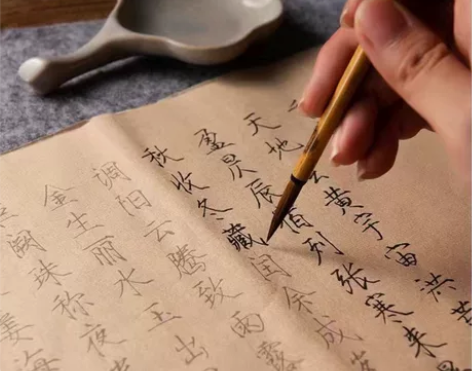 天地黄宇宙洪
盈昃辰宿列张寒来
秋收冬藏闰余成岁
调阳云腾致雨露
金生丽水玉出
阙珠称夜
姜海